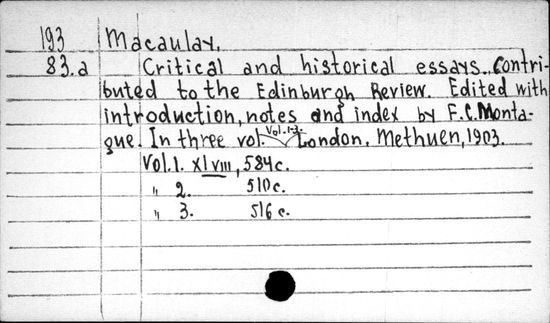 193 Macaulay.
83.a Critical and historical essays.. Contri-
buted to the Edinburgh Review. Edited with
introduction, notes and index by F.C. Monta-
gue. In three vol. Vol. 1-3. London, Methuen, 1903.
Vol. 1. XLVIII, 584 c.
" 2. 510 c.
" 3. 516 c.